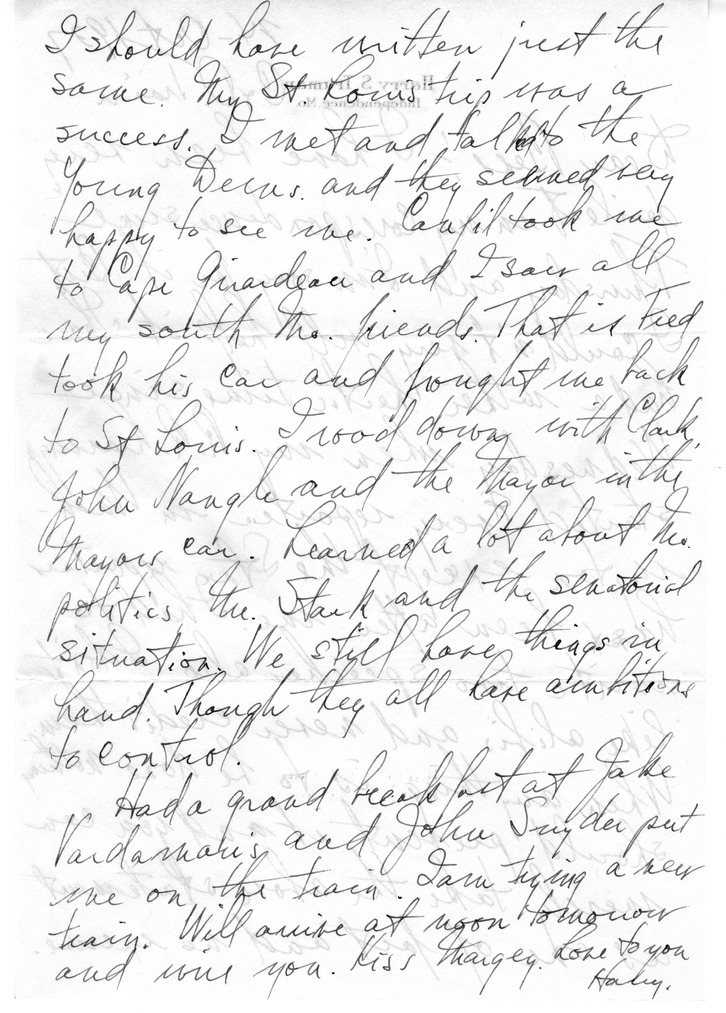 I should have written just the
same. My St. Louis trip was a
success. I met and talk to the
Young Dems. and they seemed very
happy to see me. Canfil took me
to Cape Girardeau and I saw all
my south Mo. friends. That is Fred
took his car and brought me back
to St Louis. I rood down with Clark,
John Nangle and the Mayor in the
Mayors car. Learned a lot about Mo.
politics, Mr. Stark and the senatorial
situation. We still have things in
hand. Though they all have ambitions
to control.
Had a grand breakfast at Jake
Vardaman's and John Snyder put
me on the train. I am trying a new
train. Will arrive at noon tomorrow
and wire you. Kiss Margey. Love to you
Harry.